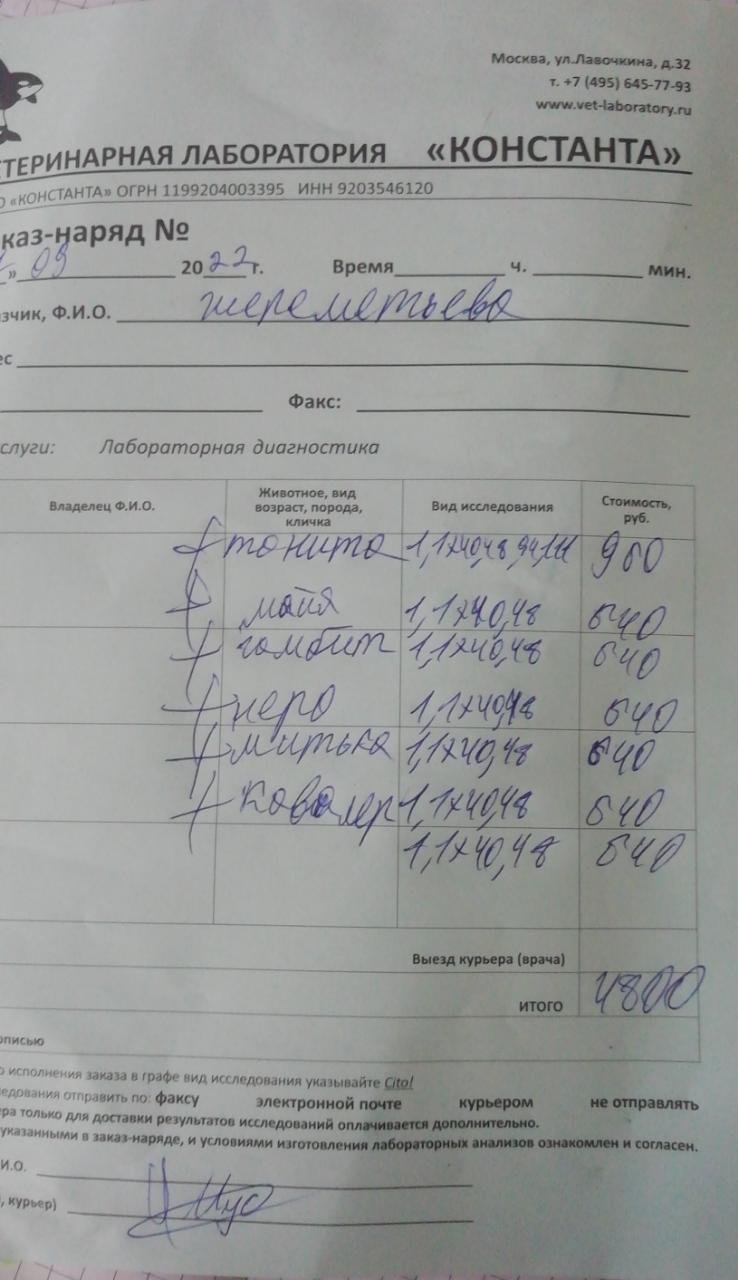 Москва, ул.Лавочкина, д.32
т. +7 (495) 645-77-93
www.vet-laboratory.ru
ТЕРИНАРНАЯ ЛАБОРАТОРИЯ «КОНСТАНТА»
О «КОНСТАНТА» ОГРН 1199204003395 ИНН 9203546120
каз-наряд №
» 09 2022 г. Время ч. мин.
зчик, Ф.И.О. шереметьева
ес
Факс:
слуги: Лабораторная диагностика
Владелец Ф.И.О. Животное, вид возраст, порода, кличка Вид исследования Стоимость, руб.
+ тонита 1,1х40,48 960
+ майя 1,1х40,48 640
+ гамбит 1,1х40,48 640
+ неро 1,1х40,48 640
+ митька 1,1х40,48 640
+ кавалер 1,1х40,48 640
1,1х40,48 640
Выезд курьера (врача)
ИТОГО 4800
описью
о исполнения заказа в графе вид исследования указывайте Cito!
ледования отправить по: факсу электронной почте курьером не отправлять
ера только для доставки результатов исследований оплачивается дополнительно.
указанными в заказ-наряде, и условиями изготовления лабораторных анализов ознакомлен и согласен.
И.О.
, курьер)